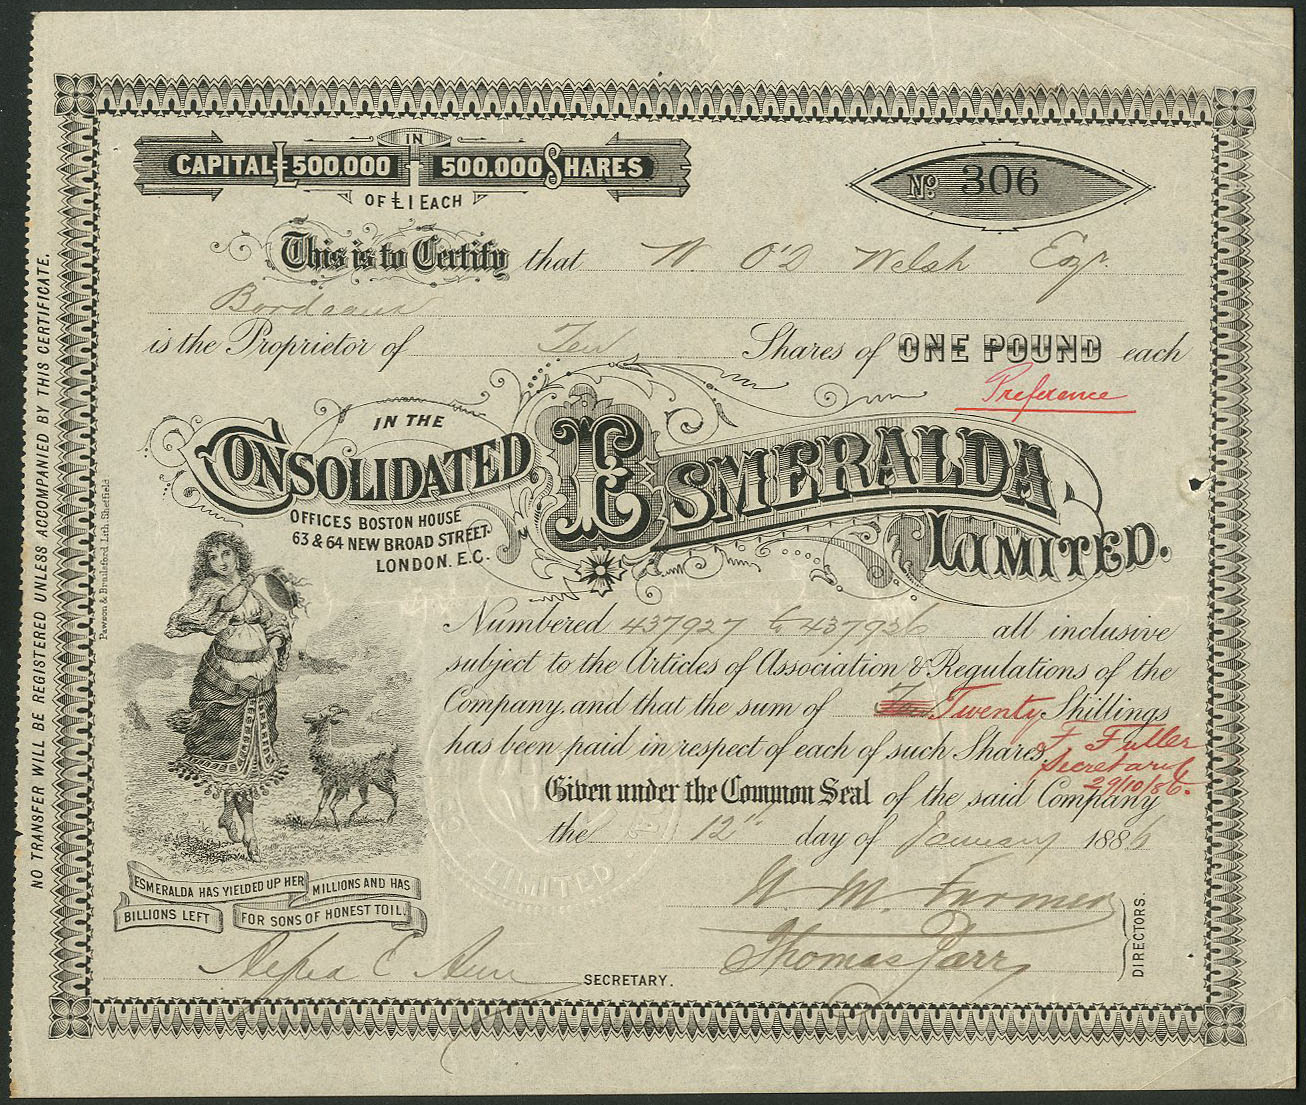 CAPITAL £500,000 IN 500,000 SHARES
OF £1 EACH
No 306
This is to Certify that W O'D Welsh Esqr.
Bordeaux
is the Proprietor of Ten Shares of ONE POUND each
Preference
IN THE
CONSOLIDATED ESMERALDA
LIMITED.
OFFICES BOSTON HOUSE
63 & 64 NEW BROAD STREET.
LONDON. E.C.
Numbered 437927 to 437936 all inclusive
subject to the Articles of Association & Regulations of the
Company, and that the sum of Twenty Shillings
has been paid in respect of each of such Shares.
F Fuller
Secretary
29/10/86.
Given under the Common Seal of the said Company
the 12th day of January 1886
ESMERALDA HAS YIELDED UP HER MILLIONS AND HAS
BILLIONS LEFT FOR SONS OF HONEST TOIL.
W. M. Farmer
Thomas Parr
DIRECTORS.
SECRETARY.
NO TRANSFER WILL BE REGISTERED UNLESS ACCOMPANIED BY THIS CERTIFICATE.
Pawson & Brailsford Lith. Sheffield
LIMITED